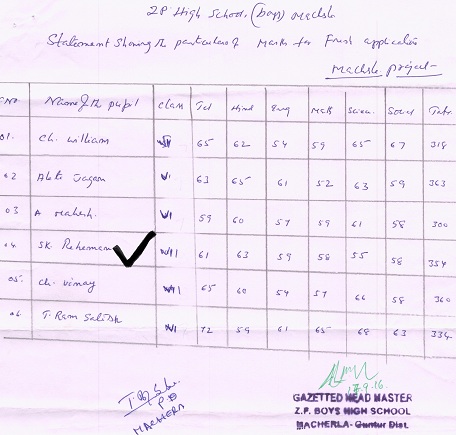 ZP High School (boys) Macherla
Statement showing the particulars of Marks for Fresh application
Macherla project
S.NO Name of the pupil Class Tel Hind Eng Mats Scien. Social Totr.
01. Ch. William VI 65 62 54 59 65 67 318
02 Abti Jagan VI 63 65 61 52 63 59 363
03 A Mahesh. VI 59 60 57 59 61 58 300
04. SK. Rehemon VII 61 63 59 58 55 58 354
05. Ch. Vinay VII 65 60 54 57 66 58 360
06 T. Ram Sai VI 72 59 61 65 68 63 334
17.9.16.
P.D
MACHERLA
GAZETTED HEAD MASTER
Z.P. BOYS HIGH SCHOOL
MACHERLA- Guntur Dist.